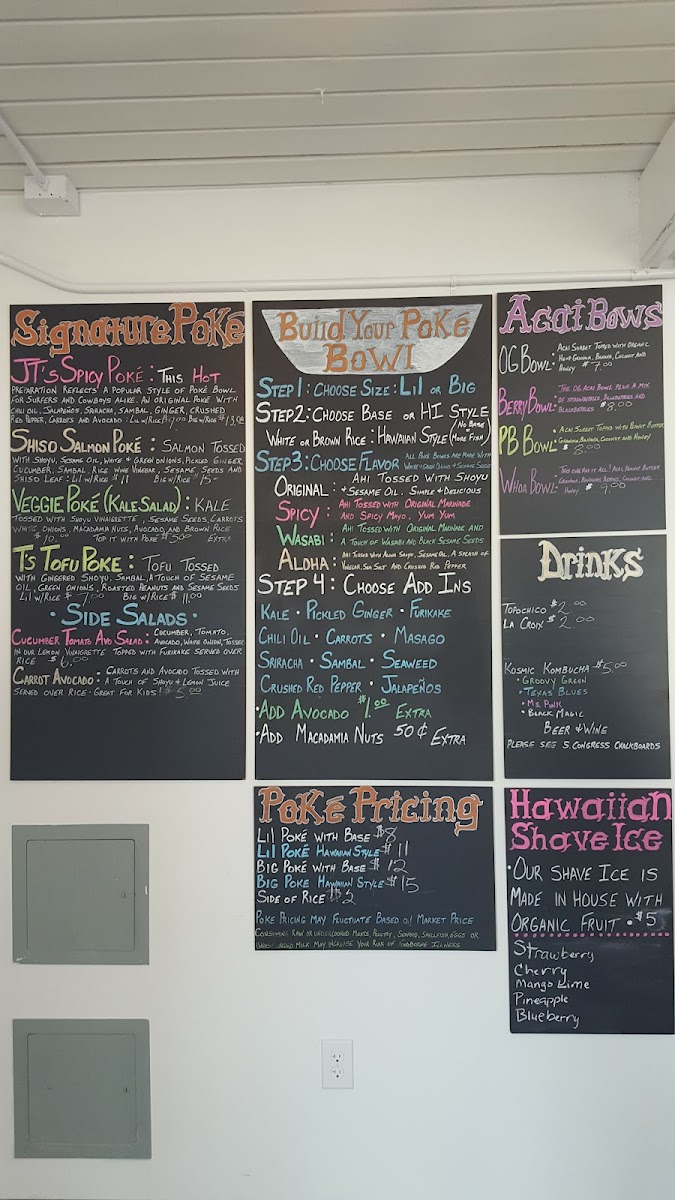 Signature Poké
JT's Spicy Poké: This Hot
preparation reflects a popular style of Poké Bowl
for surfers and cowboys alike. An original Poké with
chili oil, jalapeños, sriracha, sambal, ginger, crushed
red pepper, carrots and avocado. Lil w/rice $9.00 Big w/rice $13.00
Shiso Salmon Poké: Salmon tossed
with shoyu, sesame oil, white & green onions, pickled ginger,
cucumber, sambal, rice wine vinegar, sesame seeds and
shiso leaf: Lil w/rice $11 Big w/rice $15-
Veggie Poké (Kale Salad): Kale
tossed with shoyu vinaigrette, sesame seeds, carrots
white onions, macadamia nuts, avocado, and brown rice
$10.00 Top it with Poke $5.00 extra
T's Tofu Poke: Tofu tossed
with gingered shoyu, sambal, a touch of sesame
oil, green onions, roasted peanuts and sesame seeds
Lil w/rice $7.00 Big w/rice $11.00
• Side Salads •
Cucumber Tomato Avo Salad: Cucumber, tomato,
avocado, white onion, tossed
in our lemon vinaigrette topped with furikake served over
rice $6.00
Carrot Avocado: • Carrots and avocado tossed with
a touch of shoyu & lemon juice
served over rice - great for kids! $5.00
Build Your Poké
Bowl
Step 1: Choose Size: Lil or Big
Step 2: Choose Base or HI Style
White or Brown Rice: Hawaiian Style (No Base More Fish)
Step 3: Choose Flavor All Poke Bowls are made with
White & Green Onions & Sesame Seeds
Original: Ahi tossed with shoyu
& sesame oil. Simple & delicious
Spicy: Ahi tossed with original marinade
and spicy mayo. Yum Yum
Wasabi: Ahi tossed with original marinade and
a touch of wasabi and black sesame seeds
Aloha: Ahi tossed with aloha shoyu, sesame oil, a splash of
vinegar, sea salt and crushed red pepper
Step 4: Choose Add Ins
Kale • Pickled Ginger • Furikake
Chili Oil • Carrots • Masago
Sriracha • Sambal • Seaweed
Crushed Red Pepper • Jalapeños
• Add Avocado $1.00 Extra
• Add Macadamia Nuts 50¢ Extra
Poké Pricing
Lil Poké with Base $8
Lil Poké Hawaiian Style $11
Big Poké with Base $12
Big Poke Hawaiian Style $15
Side of Rice $2
Poke pricing may fluctuate based on market price
Consuming raw or undercooked meats, poultry, seafood, shellfish, eggs or
milk may increase your risk of foodborne illness
Acai Bowls
OG Bowl: • Acai sorbet topped with organic
hemp granola, banana, coconut and
honey $7.00
Berry Bowl: • The OG Acai Bowl plus a mix
of strawberries, blueberries and
blackberries $8.00
PB Bowl: • Acai sorbet topped with peanut butter
granola, banana, coconut and honey
$8.00
Whoa Bowl: • This one has it all! Acai, peanut butter
granola, bananas, berries, coconut and
honey $9.00
Drinks
Topochico $2.00
La Croix $2.00
Kosmic Kombucha $5.00
• Groovy Green
• Texas Blues
• Ms. Pink
• Black Magic
Beer & Wine
Please see S. Congress chalkboards
Hawaiian
Shave Ice
• Our shave ice is
made in house with
organic fruit • $5
Strawberry
Cherry
Mango Lime
Pineapple
Blueberry